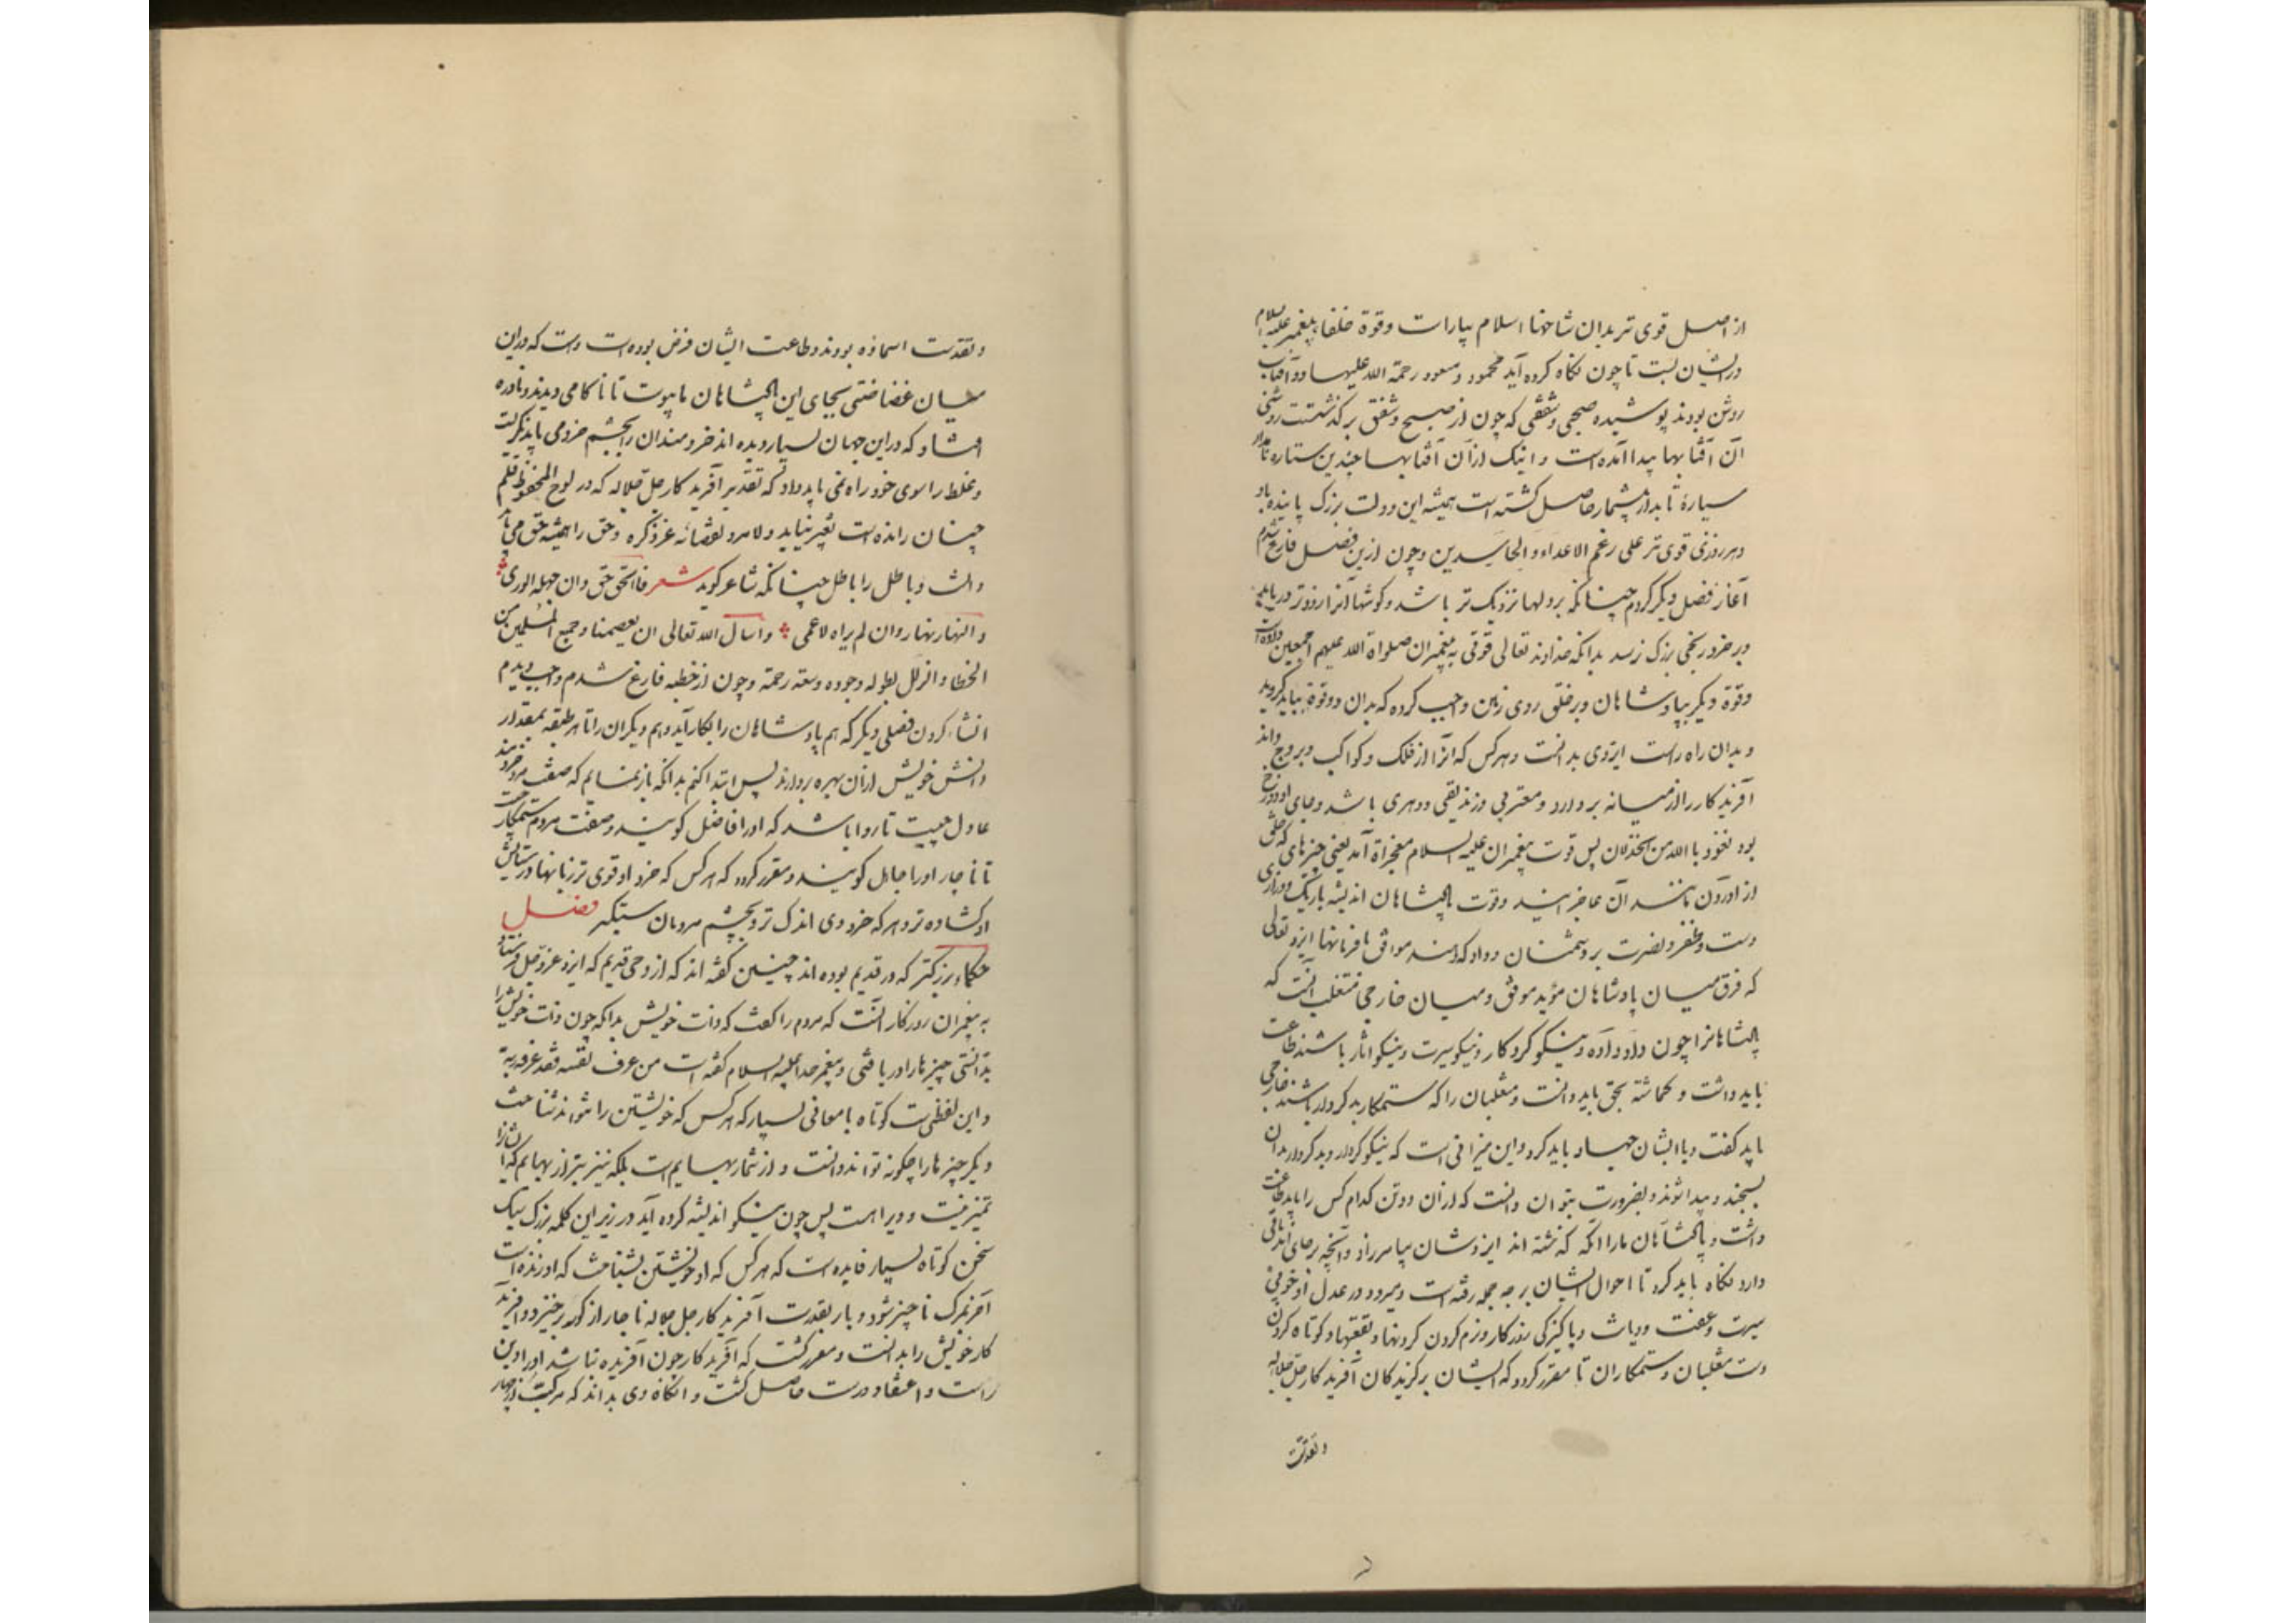 از اصل قوی تر بدان شاخها اسلام بیارات وقوة خلفا پیغمبر علیه السلام
در ایشان بست تا چون نکاه کرده آید محمود و مسعود رحمة الله علیهما دو آفتاب
روشن بودند پوشیده صبحی و شفقی که چون از صبح و شفق برکذشتت روشنی
آن آفتابها پیدا آمده است و اینک ازان آفتابها چندین ستاره نامدار
سیارهٔ تابدار بیشمار حاصل کشته است همیشه این دولت بزرک پاینده باد
و هر روزی قوی تر علی رغم الاعداء و الحاسدین و چون ازین فصل فارغ شدم
آغاز فصل دیکر کردم چنانکه بر دلها نزدیک تر باشد و کوشها آنرا زودتر دریابد
و بر خرد رنجی بزرک نرسد بدانکه خداوند تعالی قوتی به پیغمبران صلواة الله علیهم اجمعین داده است
وقوة دیکر بپادشاهان و بر خلق روی زمین واجب کرده که بدان دو قوة بباید کروید
و بدان راه راست ایزدی بدانست و هر کس که انرا از فلک و کواکب و بروج داند
آفریدکار را از میانه بردارد و معتزلی و زندیقی و دهری باشد و جای او دوزخ
بود نعوذ با الله من الخذلان پس قوت پیغمبران علیهم السلام معجزاة آمد یعنی چیزهای که خلق
از اوردن مانند آن عاجز ایند وقوت پادشاهان اندیشه باریک و درازی
دست و ظفر و نصرت بر دشمنان و داد که دهند موافق با فرمانها ایزد تعالی
که فرق میان پادشاهان مؤید موفق و میان خارجی متغلب آنست که
پادشاهانرا چون داد داده و نیکو کردکار و نیکو سیرت و نیکو اثار باشند طاعت
باید داشت و کماشته بحق باید دانست و متغلبان را که ستمکار بد کردار باشند خارجی
باید کفت و با ایشان جهاد باید کرد و این میزانی است که نیکو کردار و بد کردار بدان
بسنجند و پیدا شوند و بضرورت بتوان دانست که ازان دو تن کدام کس را باید طاعت
داشت و پادشاهان ما را انکه کذشته اند ایزدشان بیامرزاد و آنچه برجای اند باقی
دارد نکاه باید کرد تا احوال ایشان برچه جمله رفته است و میرود در عدل و خوبی
سیرت و عفت و دیانت و پاکیزکی روزکار و نرم کردن کردنها و بقعتها و کوتاه کردن
دست متغلبان و ستمکاران تا مقرر کردد که ایشان برکزیدکان آفریدکار جل جلاله
و تقدست
و تقدست اسماؤه بودند و طاعت ایشان فرض بوده است و است که درین
میان غضاضتی بجای این پادشاهان ما پیوست تا ناکامی دیدند و نادره
افتاد که در این جهان بسیار دیده اند خردمندان را بچشم خرد می باید نکریست
و غلط را سوی خود راه نمی باید داد که تقدیر آفریدکار جل جلاله که در لوح المحفوظ قلم
چنان رانده است تغیر نیابد ولا مرد لقضائه عز ذکره و حق را همیشه حق می باید
دانست و باطل را باطل چنانکه شاعر کوید شعر فالحق حق وان جهله الوری
و النهار نهار وان لم یراه لاعمی و اسأل الله تعالی ان یعصمنا و جمیع المسلمین من
الخطا و الزلل بطوله وجوده وسعة رحمته و چون از خطبه فارغ شدم واجب دیدم
انشاء کردن فصلی دیکر که هم پادشاهان را بکار آید و هم دیکران را تا هر طبقه بمقدار
دانش خویش ازان بهره بردارند پس ابتدا کنم بدانکه بازنمایم که صفت مرد خردمند
عادل چیست تا روا باشد که او را فاضل کویند و صفت مردم ستمکار چیست
تا ناچار او را جاهل کویند و مقرر کردد که هر کس که خرد او قوی تر زبانها در ستایش
او کشاده تر و هر که خرد وی اندک تر وی بچشم مردمان سبکتر فصل
حکماء بزرکتر که در قدیم بوده اند چنین کفته اند که از وحی قدیم که ایزد عزوجل فرستاد
به پیغمبران روزکار آنست که مردم را کفت که ذات خویش بدانکه چون ذات خویش را
بدانستی چیزها را دریافتی و پیغمبر خدا علیه السلام کفته است من عرف نفسه فقد عرف ربه
و این لفظی است کوتاه با معانی بسیار که هر کس که خویشتن را نتواند شناخت
دیکر چیزها را چکونه تواند دانست و از شمار بهایم است بلکه نیز بتر از بهایم که ایشان را
تمیز نیست و ویرا هست پس چون نیکو اندیشه کرده آید در زیر این کلمه بزرک سبک
سخن کوتاه بسیار فایده است که هر کس که او خویشتن بشناخت که او زنده است
آخر بمرک ناچیز شود و باز بقدرت آفریدکار جل جلاله ناچار از کور برخیزد و آفرید
کار خویش را بدانست و مقرر کشت که آفریدکار چون آفریده نباشد او را دین
راست و اعتقاد درست حاصل کشت و انکاه وی بداند که مرکبست از چهار